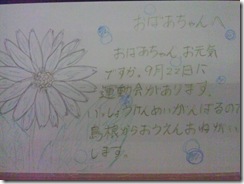 おばあちゃんへ
おばあちゃん、お元気
ですか。9月22日に
運動会があります。
いっしょうけんめいがんばるので
鳥根からおうえんおねがい
します。